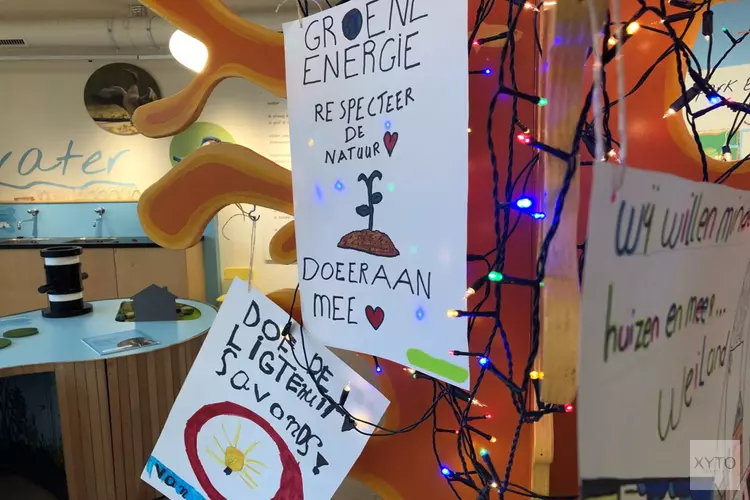 GROENE
ENERGIE
RESPECTEER
DE
NATUUR
DOEERAAN
MEE
DOE DE
LIGTEN uit
Savonds!
van
water
Wij willen
huizen en meer...
Weiland
XYTO